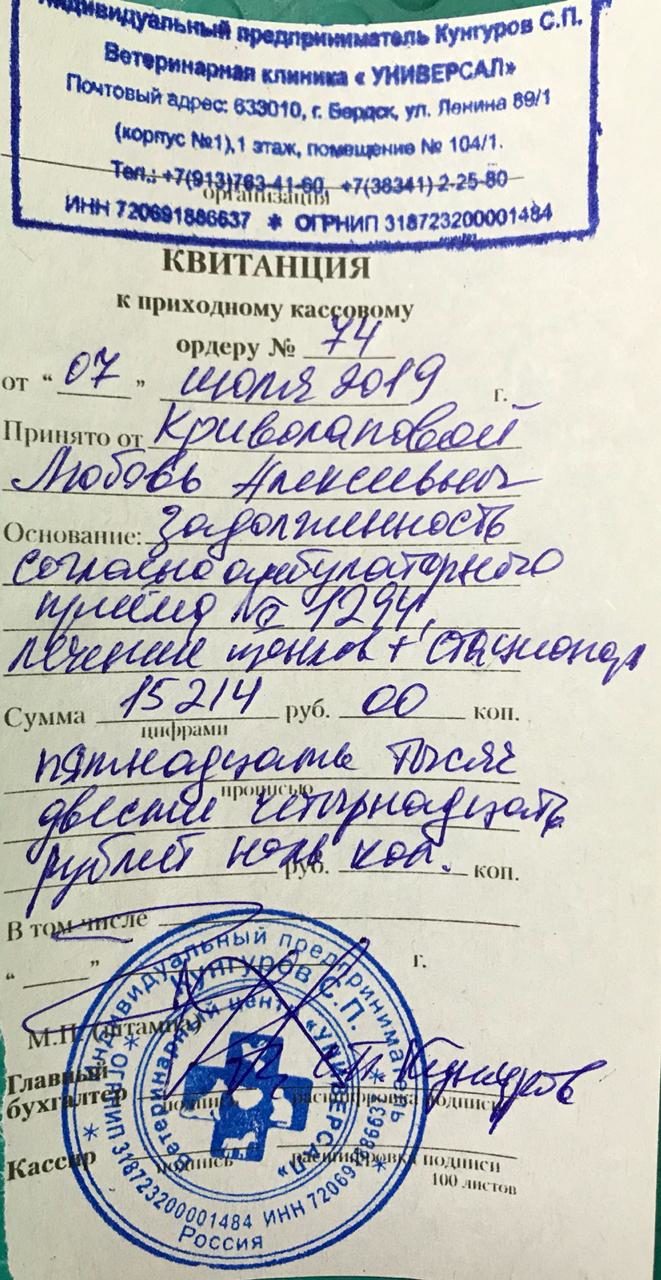 Индивидуальный предприниматель Кунгуров С.П.
Ветеринарная клиника « УНИВЕРСАЛ»
Почтовый адрес: 633010, г. Бердск, ул. Ленина 89/1
(корпус №1),1 этаж, помещение № 104/1.
Тел.: +7(913)763-41-60, +7(38341) 2-25-80
организация
ИНН 720691886637 * ОГРНИП 318723200001484
КВИТАНЦИЯ
к приходному кассовому
ордеру № 74
от “ 07 ” июля 2019 г.
Принято от Криволаповой
Любовь Алексеевны
Основание: Задолженность
согласно амбулаторного
приёма № 1294,
лечение щенков + стационар
Сумма 15214 руб. 00 коп.
цифрами
пятнадцать тысяч
прописью
двести четырнадцать
рублей ноль коп.
руб. коп.
В том числе
“ ” г.
М.П. (штампа)
Главный
бухгалтер С.П. Кунгуров
подпись расшифровка подписи
Кассир
подпись расшифровка подписи
100 листов
Индивидуальный предприниматель
Кунгуров С.П.
Ветеринарный центр «УНИВЕРСАЛ»
* ОГРНИП 318723200001484 ИНН 720691886637 *
Россия